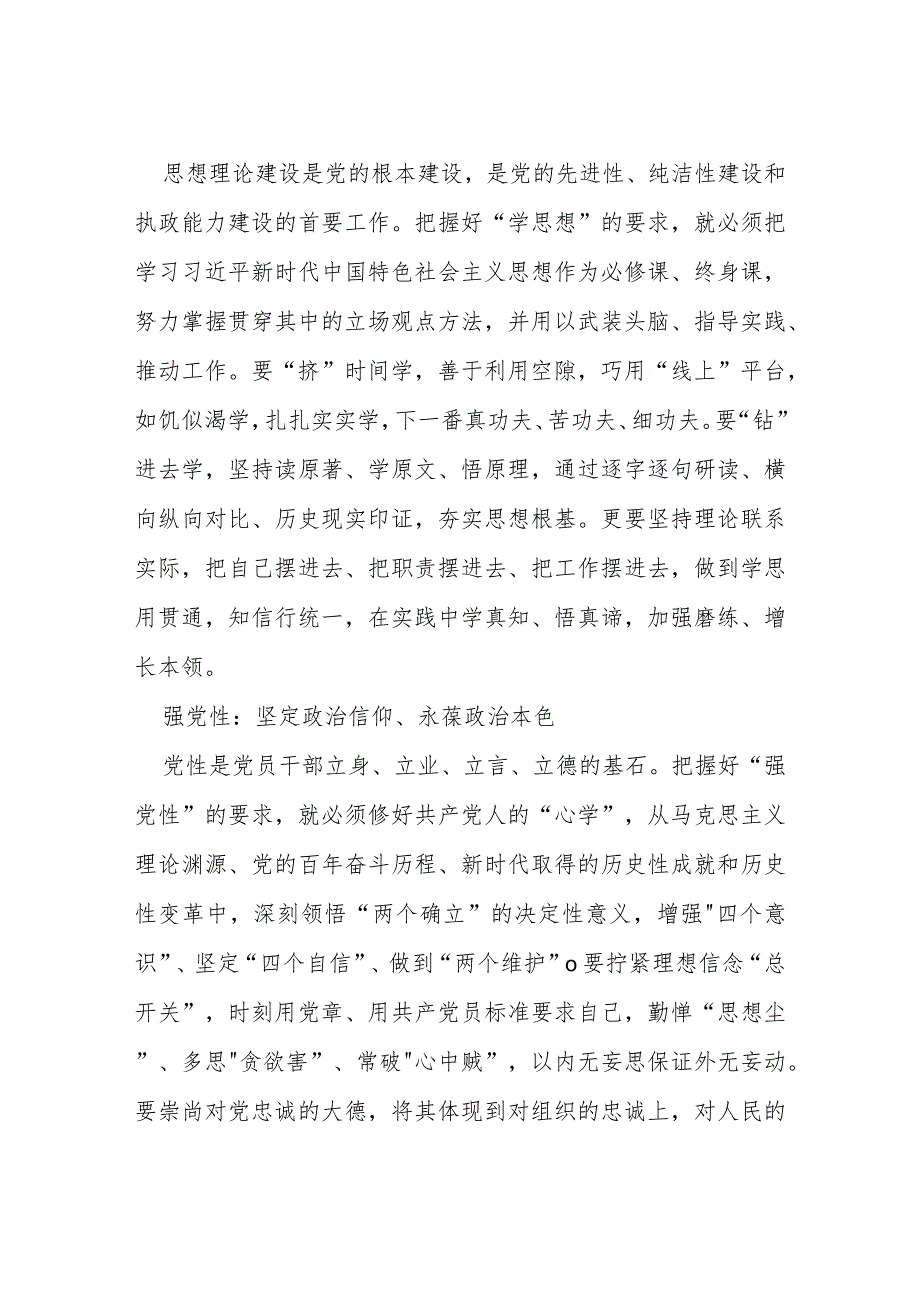 思想理论建设是党的根本建设，是党的先进性、纯洁性建设和
执政能力建设的首要工作。把握好“学思想”的要求，就必须把
学习习近平新时代中国特色社会主义思想作为必修课、终身课，
努力掌握贯穿其中的立场观点方法，并用以武装头脑、指导实践、
推动工作。要“挤”时间学，善于利用空隙，巧用“线上”平台，
如饥似渴学，扎扎实实学，下一番真功夫、苦功夫、细功夫。要“钻”
进去学，坚持读原著、学原文、悟原理，通过逐字逐句研读、横
向纵向对比、历史现实印证，夯实思想根基。更要坚持理论联系
实际，把自己摆进去、把职责摆进去、把工作摆进去，做到学思
用贯通，知信行统一，在实践中学真知、悟真谛，加强磨练、增
长本领。
强党性：坚定政治信仰、永葆政治本色
党性是党员干部立身、立业、立言、立德的基石。把握好“强
党性”的要求，就必须修好共产党人的“心学”，从马克思主义
理论渊源、党的百年奋斗历程、新时代取得的历史性成就和历史
性变革中，深刻领悟“两个确立”的决定性意义，增强"四个意
识”、坚定“四个自信”、做到“两个维护”o要拧紧理想信念“总
开关”，时刻用党章、用共产党员标准要求自己，勤惮“思想尘
”、多思"贪欲害”、常破"心中贼”，以内无妄思保证外无妄动。
要崇尚对党忠诚的大德，将其体现到对组织的忠诚上，对人民的